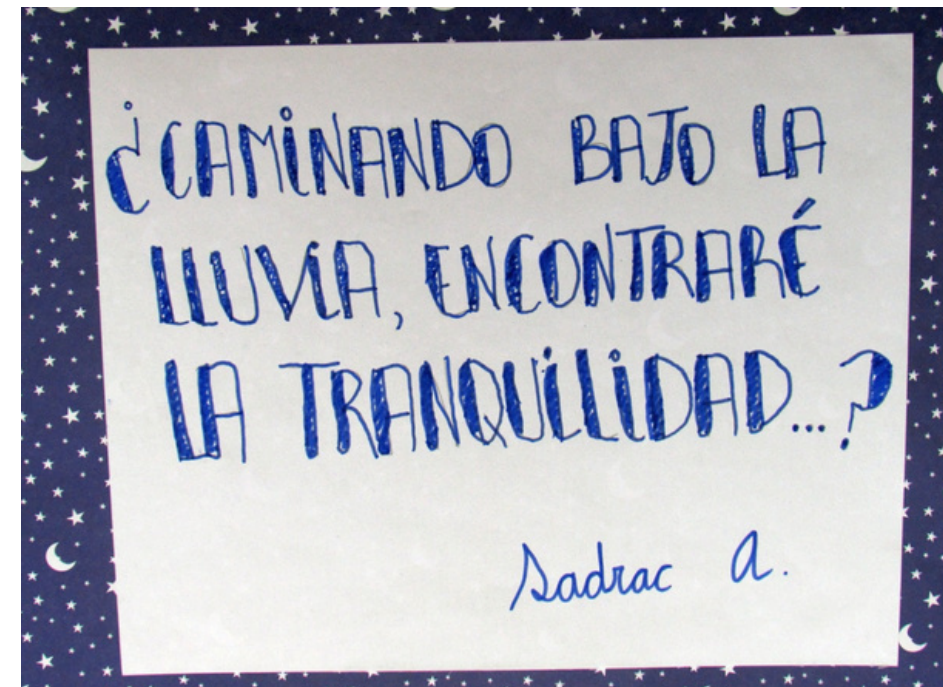 ¿CAMINANDO BAJO LA
LLUVIA, ENCONTRARÉ
LA TRANQUILIDAD...?
Sadrac A.